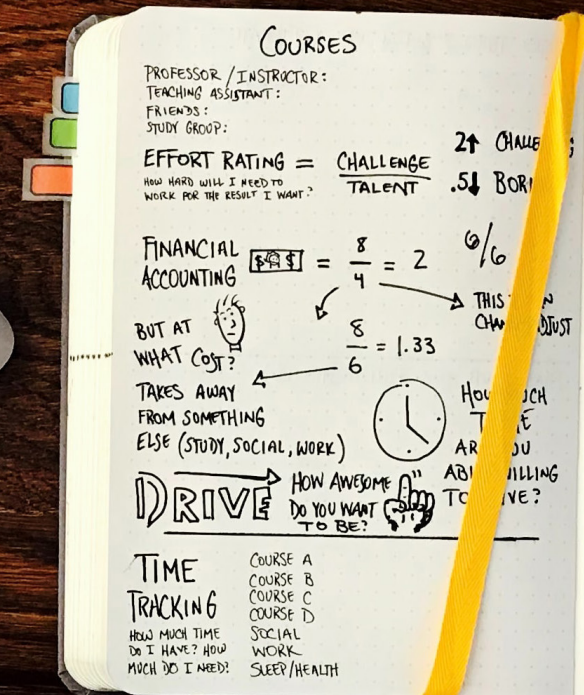 COURSES
PROFESSOR / INSTRUCTOR:
TEACHING ASSISTANT:
FRIENDS:
STUDY GROUP:
EFFORT RATING = CHALLENGE / TALENT
HOW HARD WILL I NEED TO
WORK FOR THE RESULT I WANT?
2↑ CHALLE G
.5↓ BORI
FINANCIAL
ACCOUNTING
$ $ = 8/4 = 2
6/6
THIS N
CHAN DJUST
8/6 = 1.33
BUT AT
WHAT COST?
TAKES AWAY
FROM SOMETHING
ELSE (STUDY, SOCIAL, WORK)
HOW UCH
T E
AR OU
ABL ILLING
TO IVE?
DRIVE
HOW AWESOME
DO YOU WANT
TO BE?
TIME
TRACKING
HOW MUCH TIME
DO I HAVE? HOW
MUCH DO I NEED?
COURSE A
COURSE B
COURSE C
COURSE D
SOCIAL
WORK
SLEEP/HEALTH